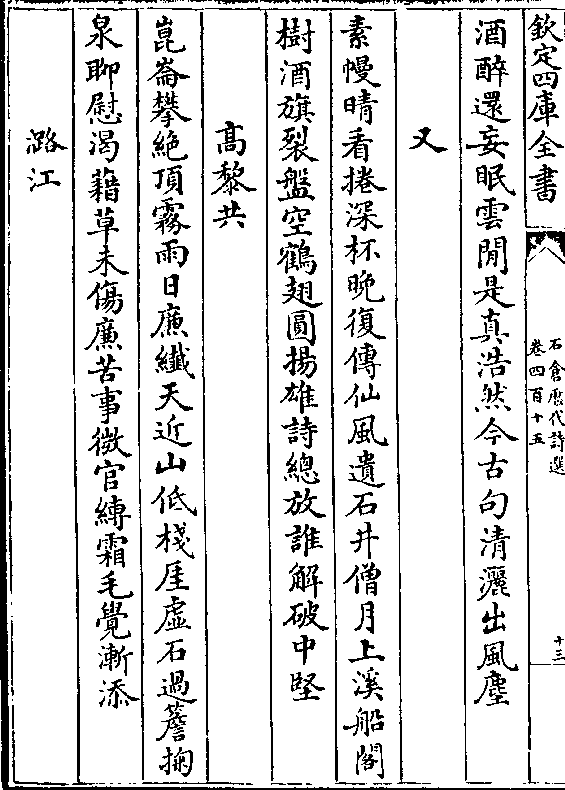 欽定四庫全書
石倉歷代詩選
卷四百十五
十三
酒醉還妄眠雲閒是真浩然今古句清灑出風塵
又
素幔晴看捲深杯晚復傳仙風遺石井僧月上溪船閣
樹酒旗裂盤空鶴翅圓揚雄詩總放誰解破中堅
高黎共
崑崙攀絶頂霧雨日㢘纖天近山低棧厓虚石過簷掬
泉聊慰渴藉草未傷㢘苦事微官縛霜毛覺漸添
潞江